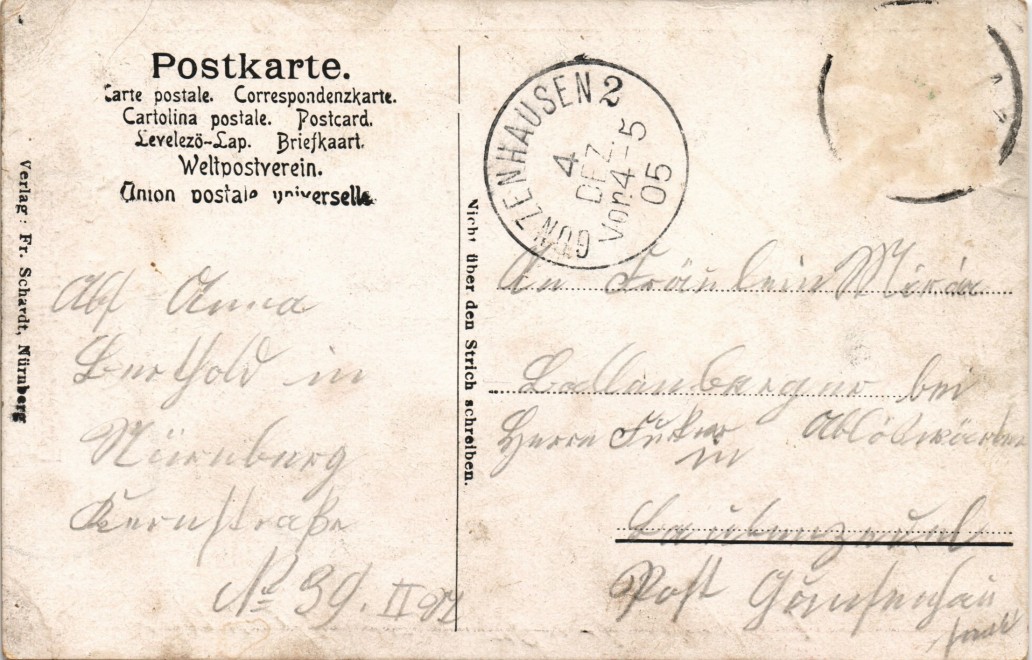 Postkarte.
Carte postale. Correspondenzkarte.
Cartolina postale. Postcard.
Levelező-Lap. Briefkaart.
Weltpostverein.
Union postale universelle
Verlag: Fr. Schardt, Nürnberg
Abs Anna
Berthold in
Nürnberg
Kernstraße
No 39. II
Nicht über den Strich schreiben.
GUNZENHAUSEN 2
4
DEZ
Vorm 4-5
05
An Fräulein Maria
bei
Herrn
in
Laubenzedel
Post Gunzenhau